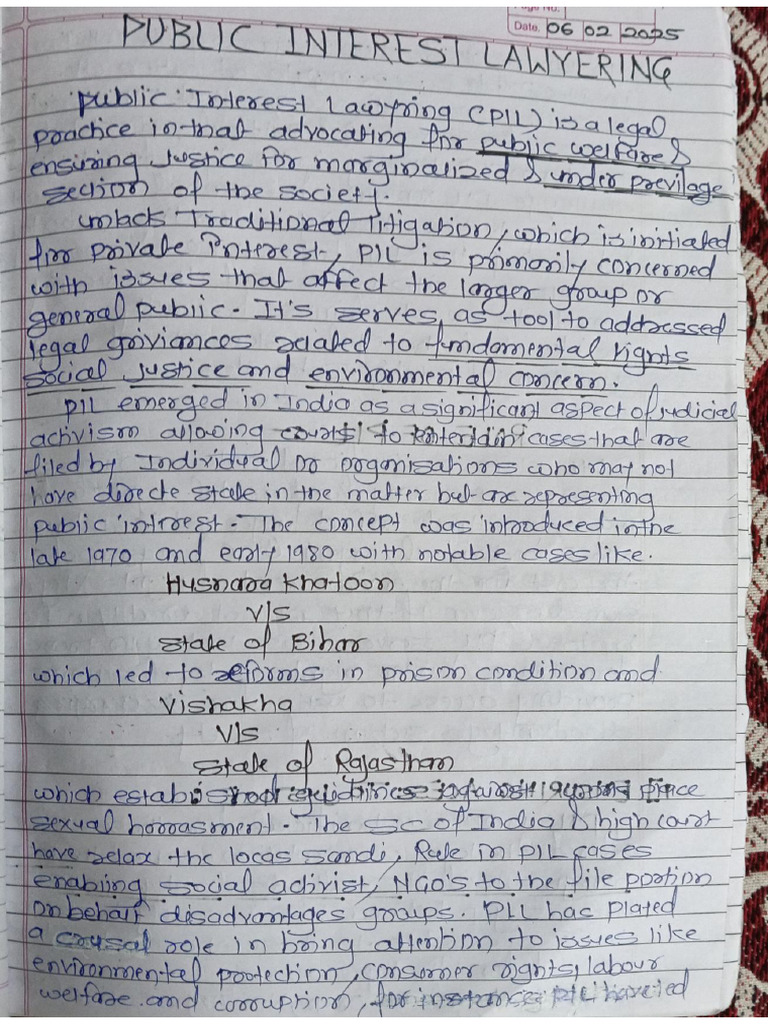 Page No.
Date. 06 02 2025
PUBLIC INTEREST LAWYERING
Public Interest Lawyring (PIL) is a legal
practice in-that advocating for public welfare &
ensuring Justice for marginalized & under previlage
section of the society.
unlack Traditional litigation, which is initiated
for private Interest, PIL is primarily concerned
with issues that affect the larger group or
general public. It's serves as tool to addressed
legal griviances related to fundamental rights
social justice and environmental concern.
PIL emerged in India as a significant aspect of judicial
activism allowing courts to cases that are
filed by Individual or organisations who may not
have directe stake in the matter but are representing
public intrest. The concept was introduced in the
late 1970 and early 1980 with notable cases like.
Husnara Khatoon
V/s
State of Bihar
which led to reforms in prison condition and
Vishakha
V/s
State of Rajasthan
which
sexual harrasment. The SC of India & high court
have relax the locas sandi, Rule in PIL cases
enabling social activist, NGO's to the file portion
on behalf disadvantages groups. PIL has plated
a crusal role in bring attention to issues like
environmental protection, consumer rights, labour
welfare and corruption, for instance PIL have led